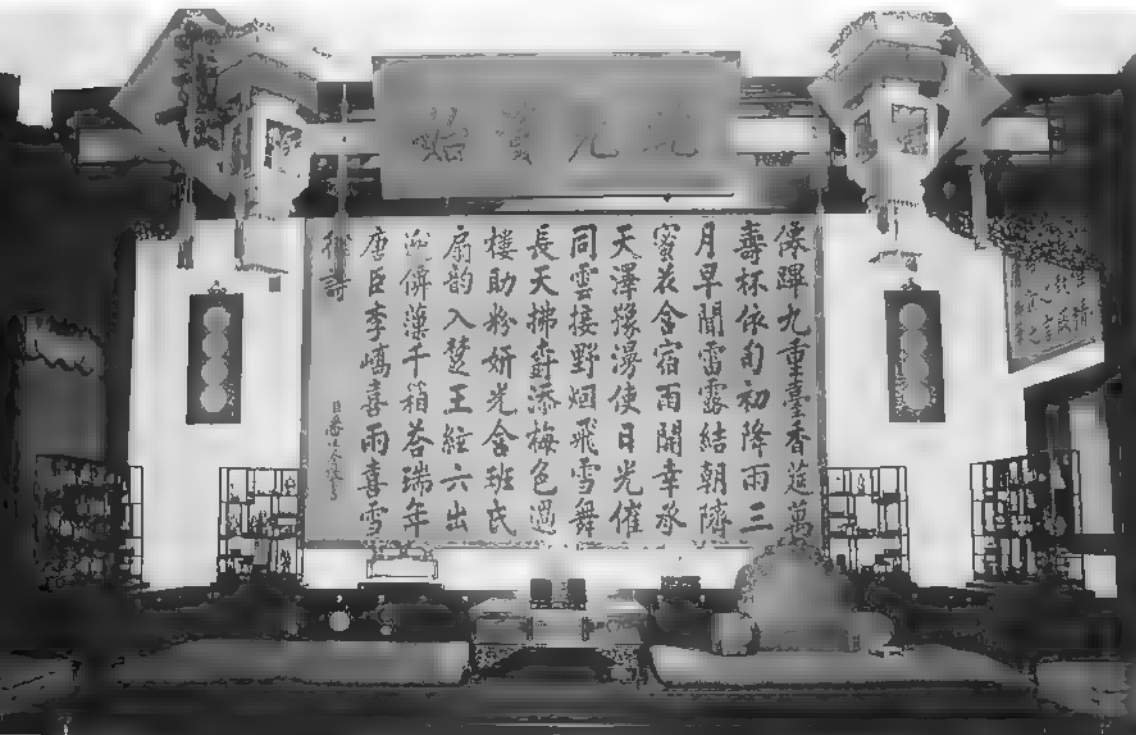 乾元資始
僊蹕九重臺香筵萬
壽杯依旬初降雨三
月早聞雷露結朝隮
蜜花含宿雨開幸承
天澤豫漫使日光催
同雲接野烟飛雪舞
長天拂樹添梅色過
樓助粉妍光含班氏
扇韵入楚王絃六出
迎藻千箱荅瑞年
唐臣李嶠喜雨喜雪
詩